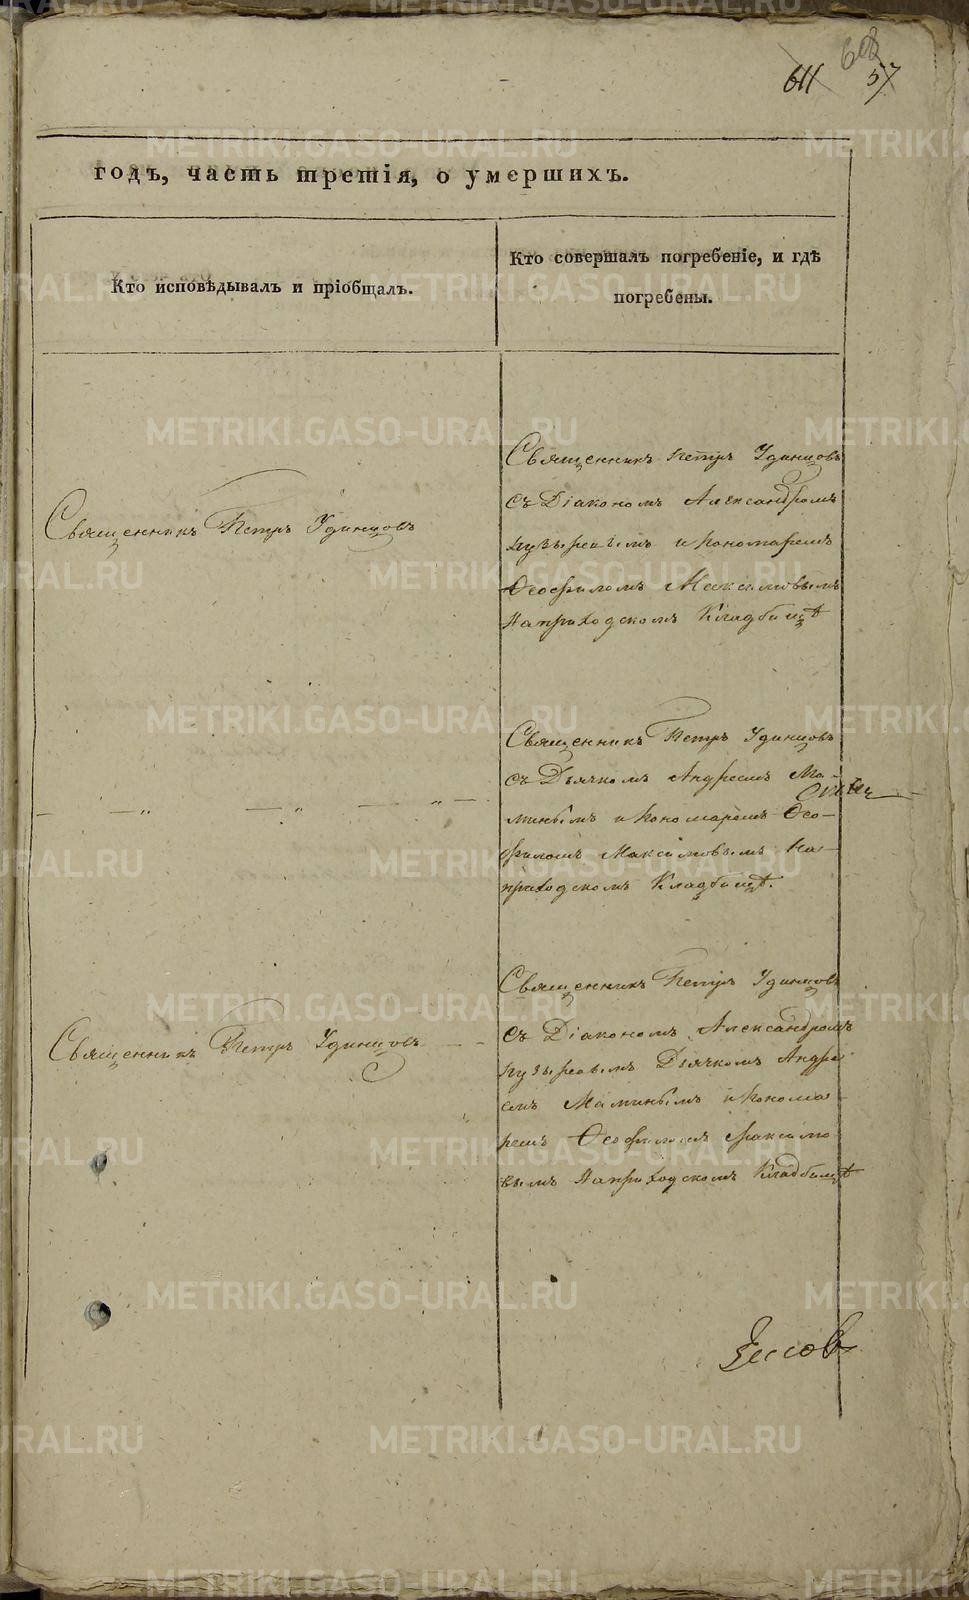 611 608 57
годъ, часть третія, о умершихъ.
Кто исповѣдывалъ и пріобщалъ.
Кто совершалъ погребеніе, и гдѣ
погребены.
Священникъ Петръ Удинцовъ
Священникъ Петръ Удинцовъ
съ Діакономъ Александромъ
пузыревымъ и пономаремъ
Ѳеофиломъ Максимовымъ
На приходскомъ Кладбищѣ
— „ — „ — „ —
Священникъ Петръ Удинцовъ
съ Дьячкомъ Андреемъ Ма-
минымъ и пономаремъ Ѳео-
филомъ Максимовымъ на
приходскомъ Кладбищѣ.
Священникъ Петръ Удинцовъ
Священникъ Петръ Удинцовъ
съ Діакономъ Александромъ
пузыревымъ Дьячкомъ Андре
емъ Маминымъ и понома-
ремъ Ѳеофиломъ Максимо
вымъ На приходскомъ Кладбищѣ
METRIKI.GASO-URAL.RU